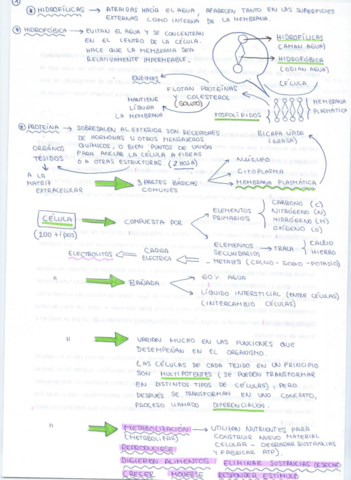 HIDROFÍLICAS → ATRAIDAS HACIA EL AGUA, APARECEN TANTO EN LAS SUPERFICIES
EXTERNAS COMO INTERNA DE LA MEMBRANA.
HIDROFÓBICA → EVITAN EL AGUA Y SE CONCENTRAN
EN EL CENTRO DE LA CÉLULA.
HACE QUE LA MEMBRANA SEA
RELATIVAMENTE IMPERMEABLE.
HIDROFÍLICA
(AMAN AGUA)
HIDROFÓBICA
(ODIAN AGUA)
CÉLULA
ENZIMAS
FLOTAN PROTEINAS
Y COLESTEROL
(SÓLIDO)
MANTIENE
LÍQUIDA
LA MEMBRANA
FOSFOLÍPIDOS
MEMBRANA
PLASMÁTICA
PROTEÍNA → SOBRESALEN AL EXTERIOR, SON RECEPTORES
DE HORMONAS U OTROS MENSAJEROS
QUÍMICOS, O BIEN PUNTOS DE UNIÓN
PARA ANCLAR LA CÉLULA A FIBRAS
O A OTRAS ESTRUCTURAS
BICAPA LÍPIDA
(GRASA)
ORGÁNOS
TEJIDOS
A LA
MATRIZ
EXTRACELULAR
3 PARTES BÁSICAS
COMUNES
NÚCLEO
CITOPLASMA
MEMBRANA PLASMÁTICA
CÉLULA
(200 tipos)
COMPUESTA POR
ELEMENTOS
PRIMARIOS
CARBONO (C)
NITRÓGENO (N)
HIDRÓGENO (H)
OXÍGENO (O)
ELEMENTOS
SECUNDARIOS
TRAZA
CALCIO
HIERRO
METALES (CALCIO - SODIO - POTASIO)
CARGA
ELÉCTRICA
ELECTROLITOS
BAÑADA
60% AGUA
LÍQUIDO INTERSTICIAL (ENTRE CÉLULAS)
(INTERCAMBIO CÉLULAS)
VARIAN MUCHO EN LAS FUNCIONES QUE
DESEMPEÑAN EN EL ORGANISMO.
LAS CÉLULAS DE CADA TEJIDO EN UN PRINCIPIO
SON MULTIPOTENTES (SE PUEDEN TRANSFORMAR
EN DISTINTOS TIPOS DE CÉLULAS), PERO
DESPUÉS SE TRANSFORMAN EN UNO CONCRETO,
PROCESO LLAMADO DIFERENCIACIÓN.
METABOLIZACIÓN
(METABOLIZAR)
UTILIZAN NUTRIENTES PARA
CONSTRUIR NUEVO MATERIAL
CELULAR - DEGRADAR SUSTANCIAS
Y FABRICAR ATP).
REPRODUCIRSE
DIGIEREN ALIMENTOS ELIMINAR SUSTANCIAS DESECHO
CRECER MOVERSE RESPONDER ESTÍMULO